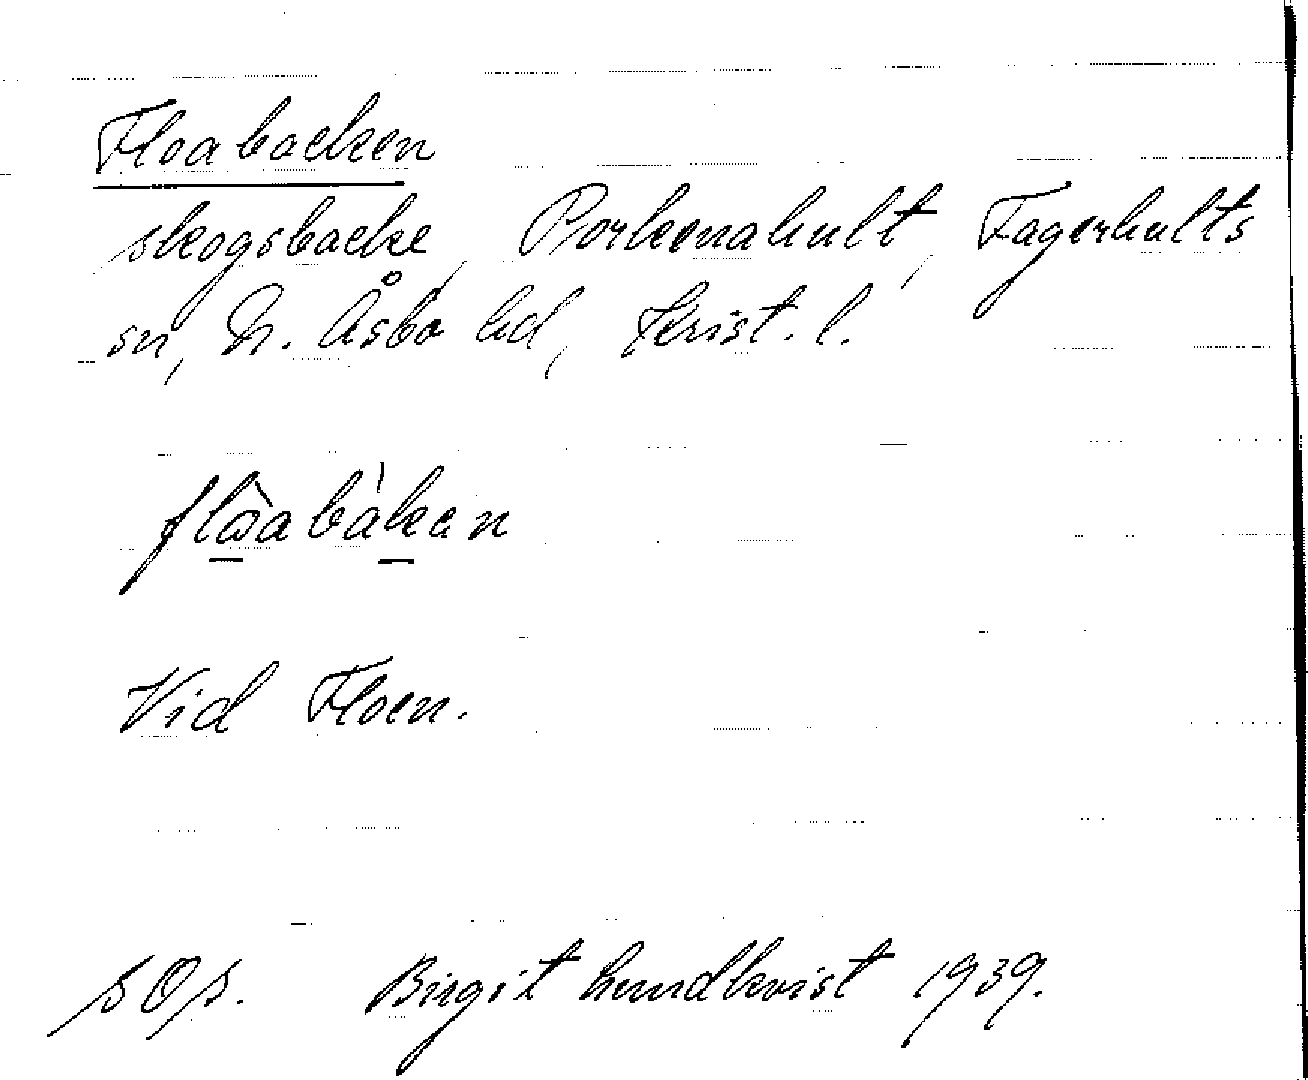 Floabacken
skogsbacke, Porkenahult, Fagerhults
sn, N. Åsbo hd, Krist. l.
flɷ̀abàkan
Vid Floen.
sOps. Birgit Lundkvist 1939.